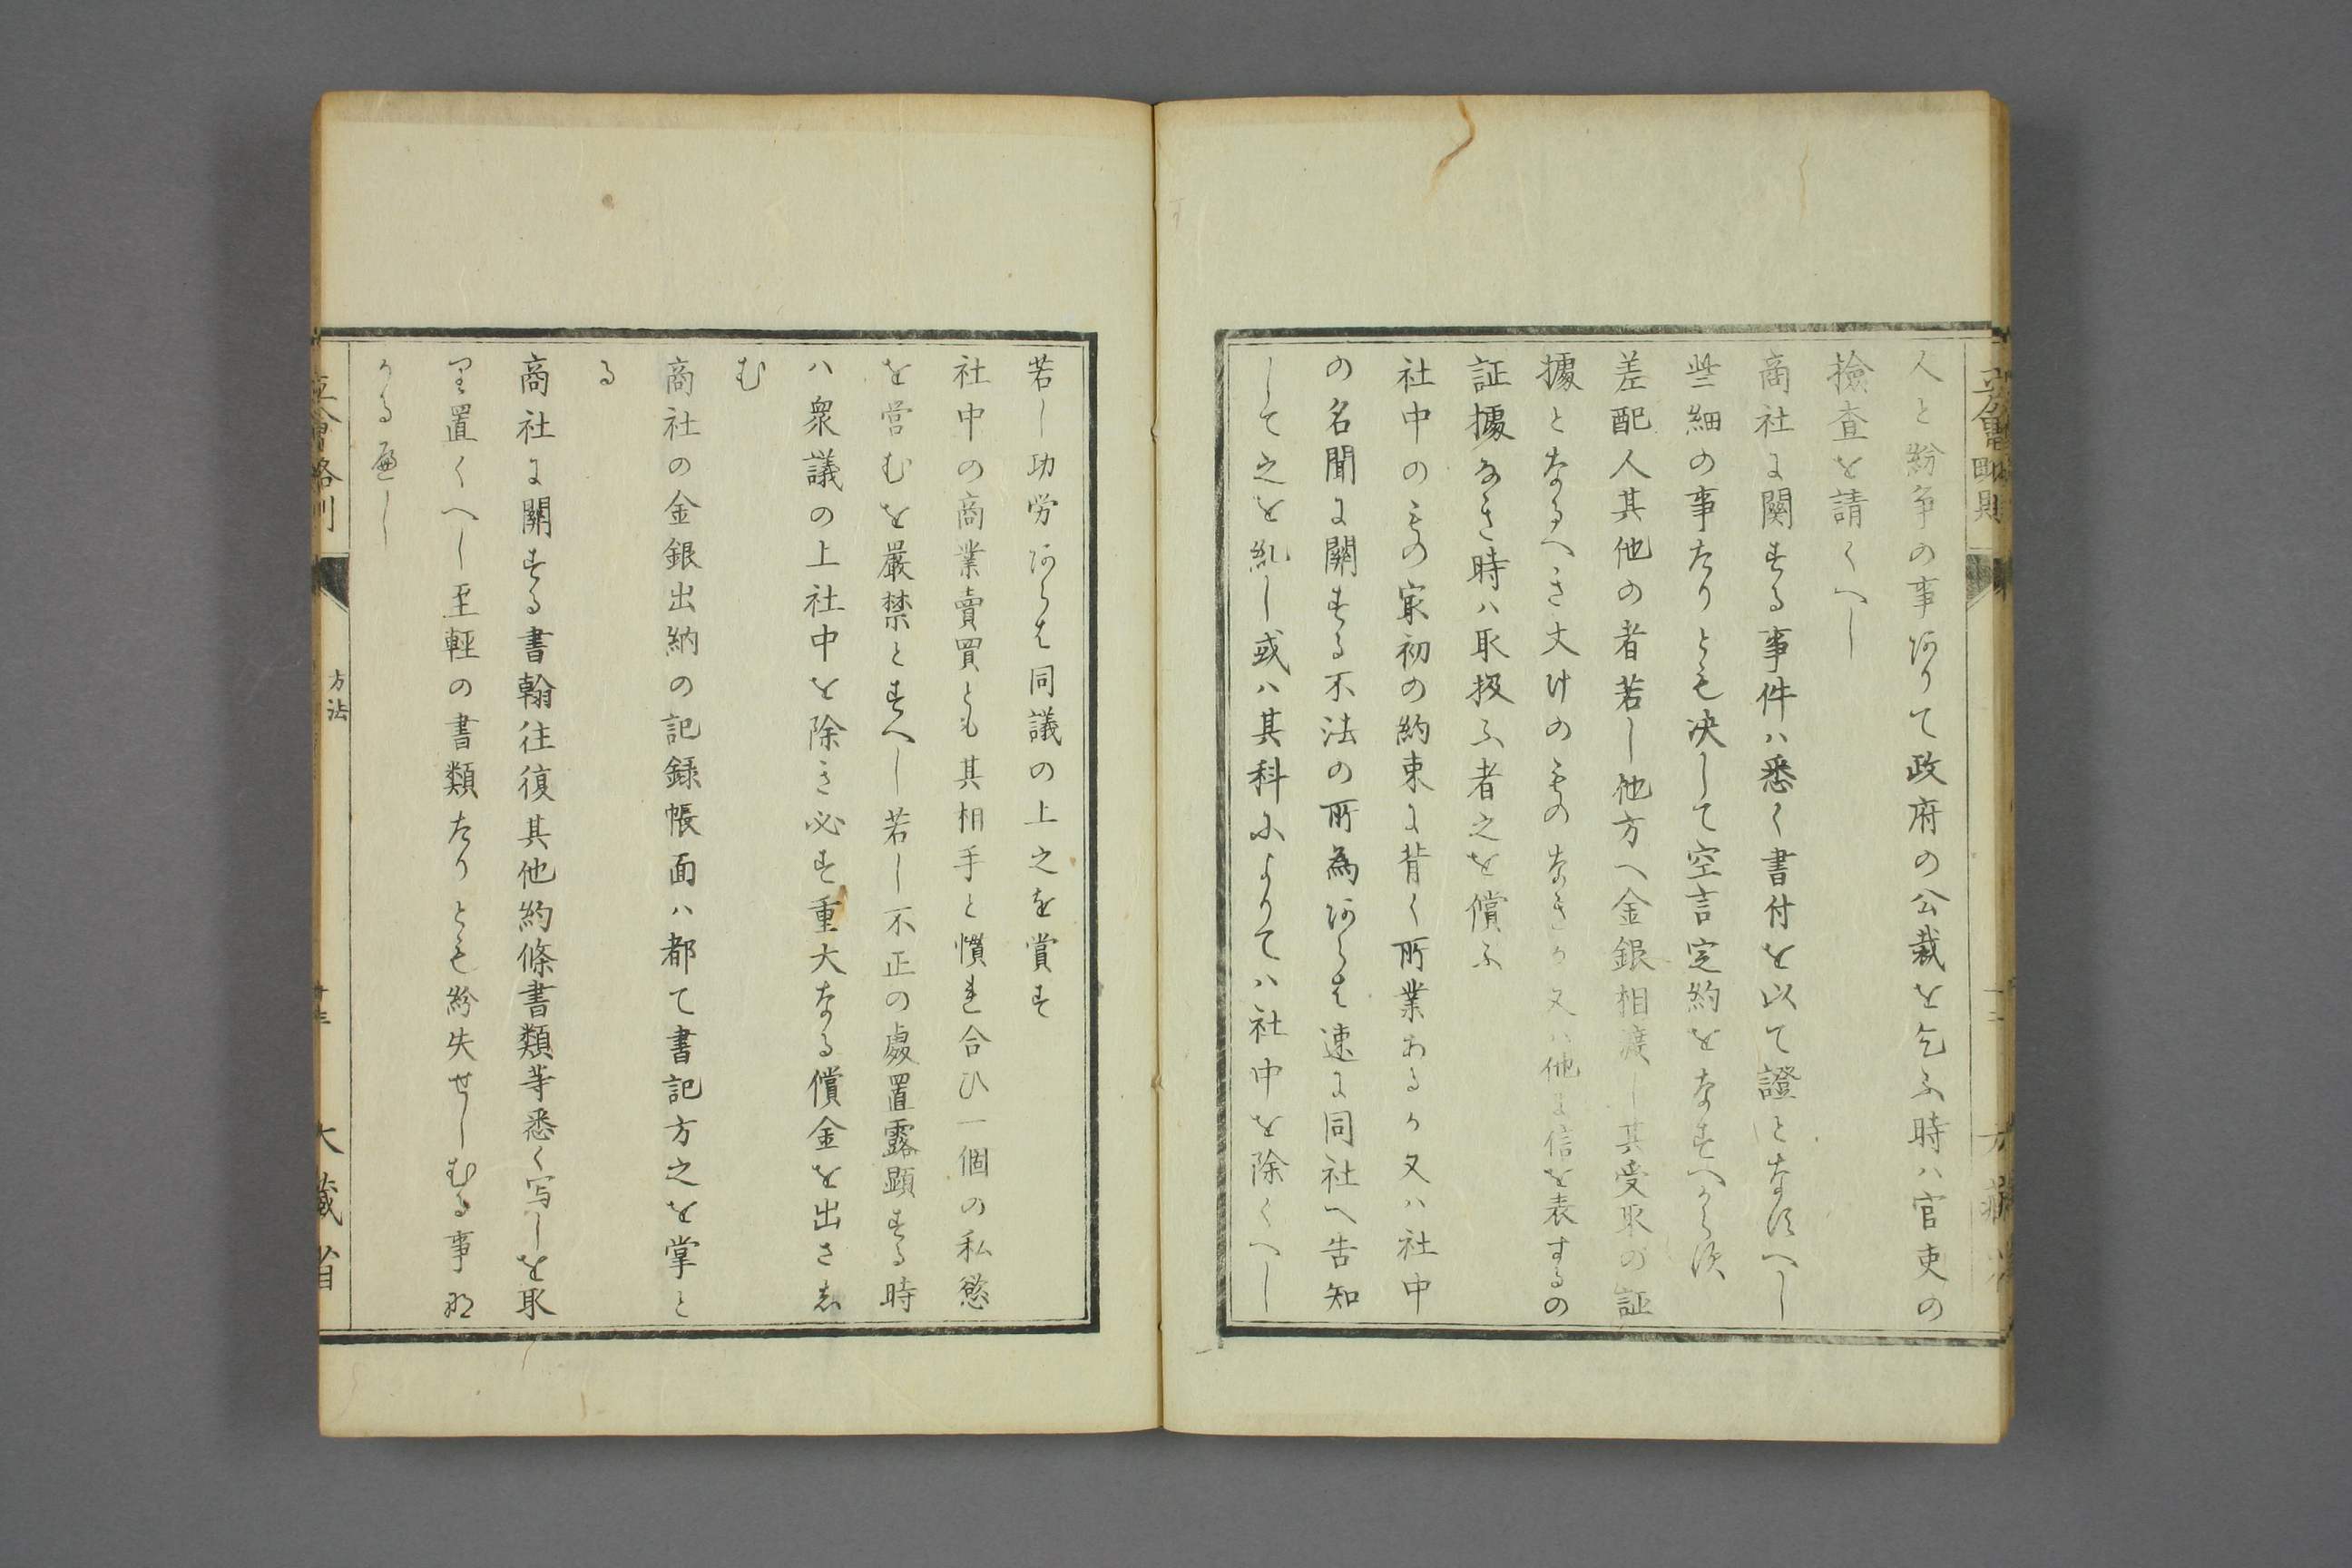 人と紛争の事ありて政府の公裁を乞ふ時ハ官吏の
撿査を請くへし
商社に関する事件ハ悉く書付を以て證となすへし
些細の事たりとも决して空言定約をなすへからす
差配人其他の者若し他方へ金銀相渡し其受取の証
據となるへき丈けのものなきか又ハ他に信を表するの
証據なき時ハ取扱ふ者之を償ふ
社中のもの最初の約束に背く所業あるか又ハ社中
の名聞に關する不法の所為あらは速に同社へ告知
して之を糺し或ハ其科によりてハ社中を除くへし
若し功労あらは同議の上之を賞す
社中の商業賣買とも其相手と慣れ合ひ一個の私慾
を営むを嚴禁とすへし若し不正の處置露顕する時
ハ衆議の上社中を除き必す重大なる償金を出さし
む
商社の金銀出納の記録帳面ハ都て書記方之を掌と
る
商社に關する書翰往復其他約條書類等悉く写しを取
り置くへし至輕の書類たりとも紛失せしむる事な
かるへし
立會略則
方法
十三
大藏省